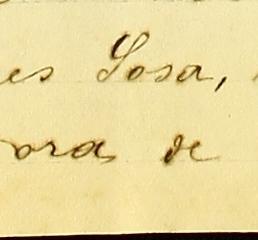 es Sosa,
ora de